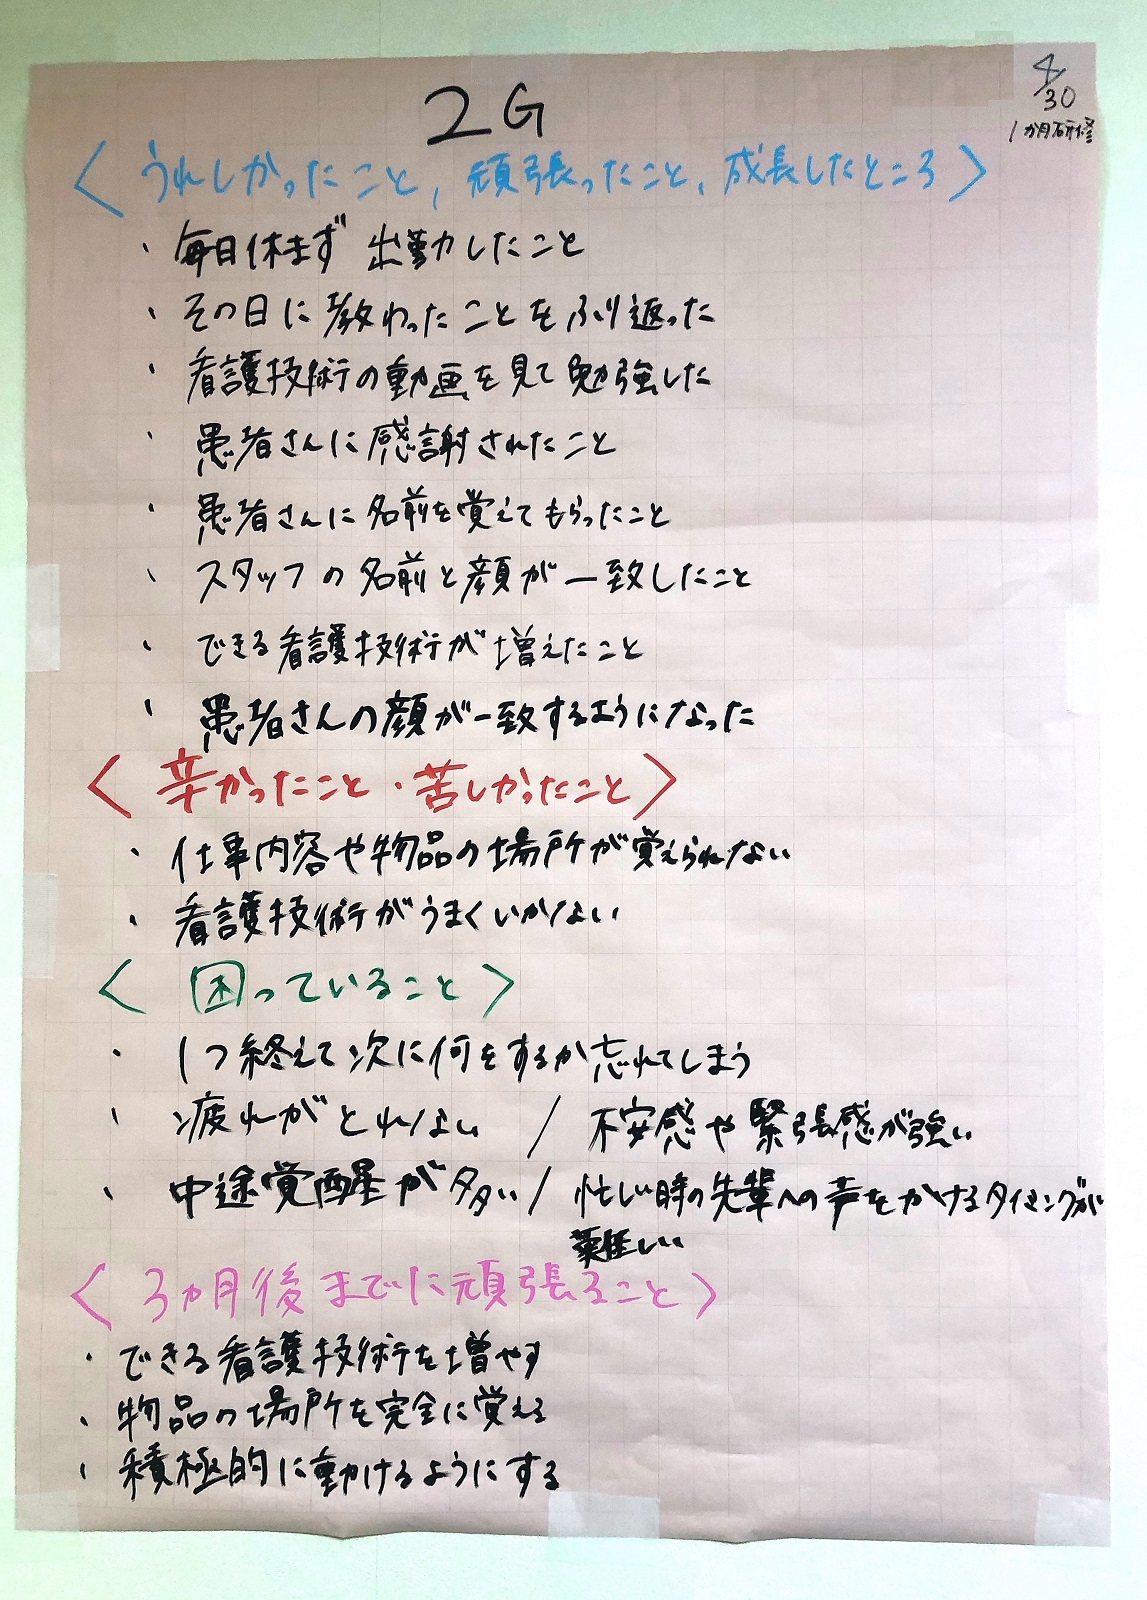 2G
4/30
1ヵ月研修
〈うれしかったこと, 頑張ったこと, 成長したところ〉
・毎日休まず出勤したこと
・その日に教わったことをふり返った
・看護技術の動画を見て勉強した
・患者さんに感謝されたこと
・患者さんに名前を覚えてもらったこと
・スタッフの名前と顔が一致したこと
・できる看護技術が増えたこと
・患者さんの顔が一致するようになった
〈辛かったこと・苦しかったこと〉
・仕事内容や物品の場所が覚えられない
・看護技術がうまくいかない
〈困っていること〉
・1つ終えて次に何をするか忘れてしまう
・疲れがとれない / 不安感や緊張感が強い
・中途覚醒が多い / 忙しい時の先輩への声をかけるタイミングが
難しい
〈3ヵ月後までに頑張ること〉
・できる看護技術を増やす
・物品の場所を完全に覚える
・積極的に動けるようにする